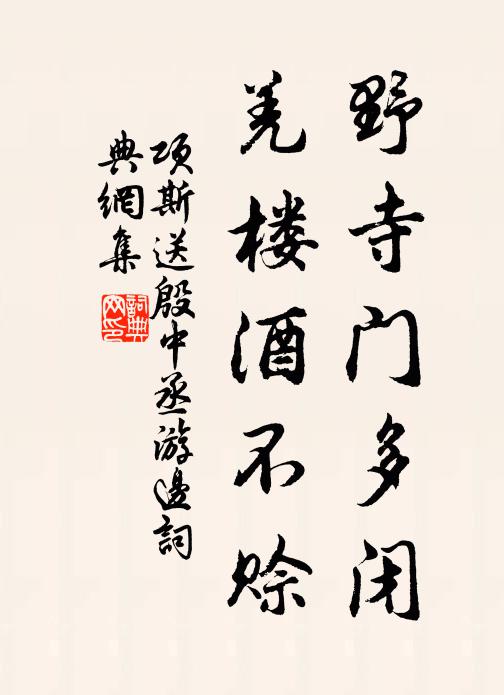 野寺门多闭
羌楼酒不赊
项斯送殷中丞游邊詞
典網集
詞典
网印